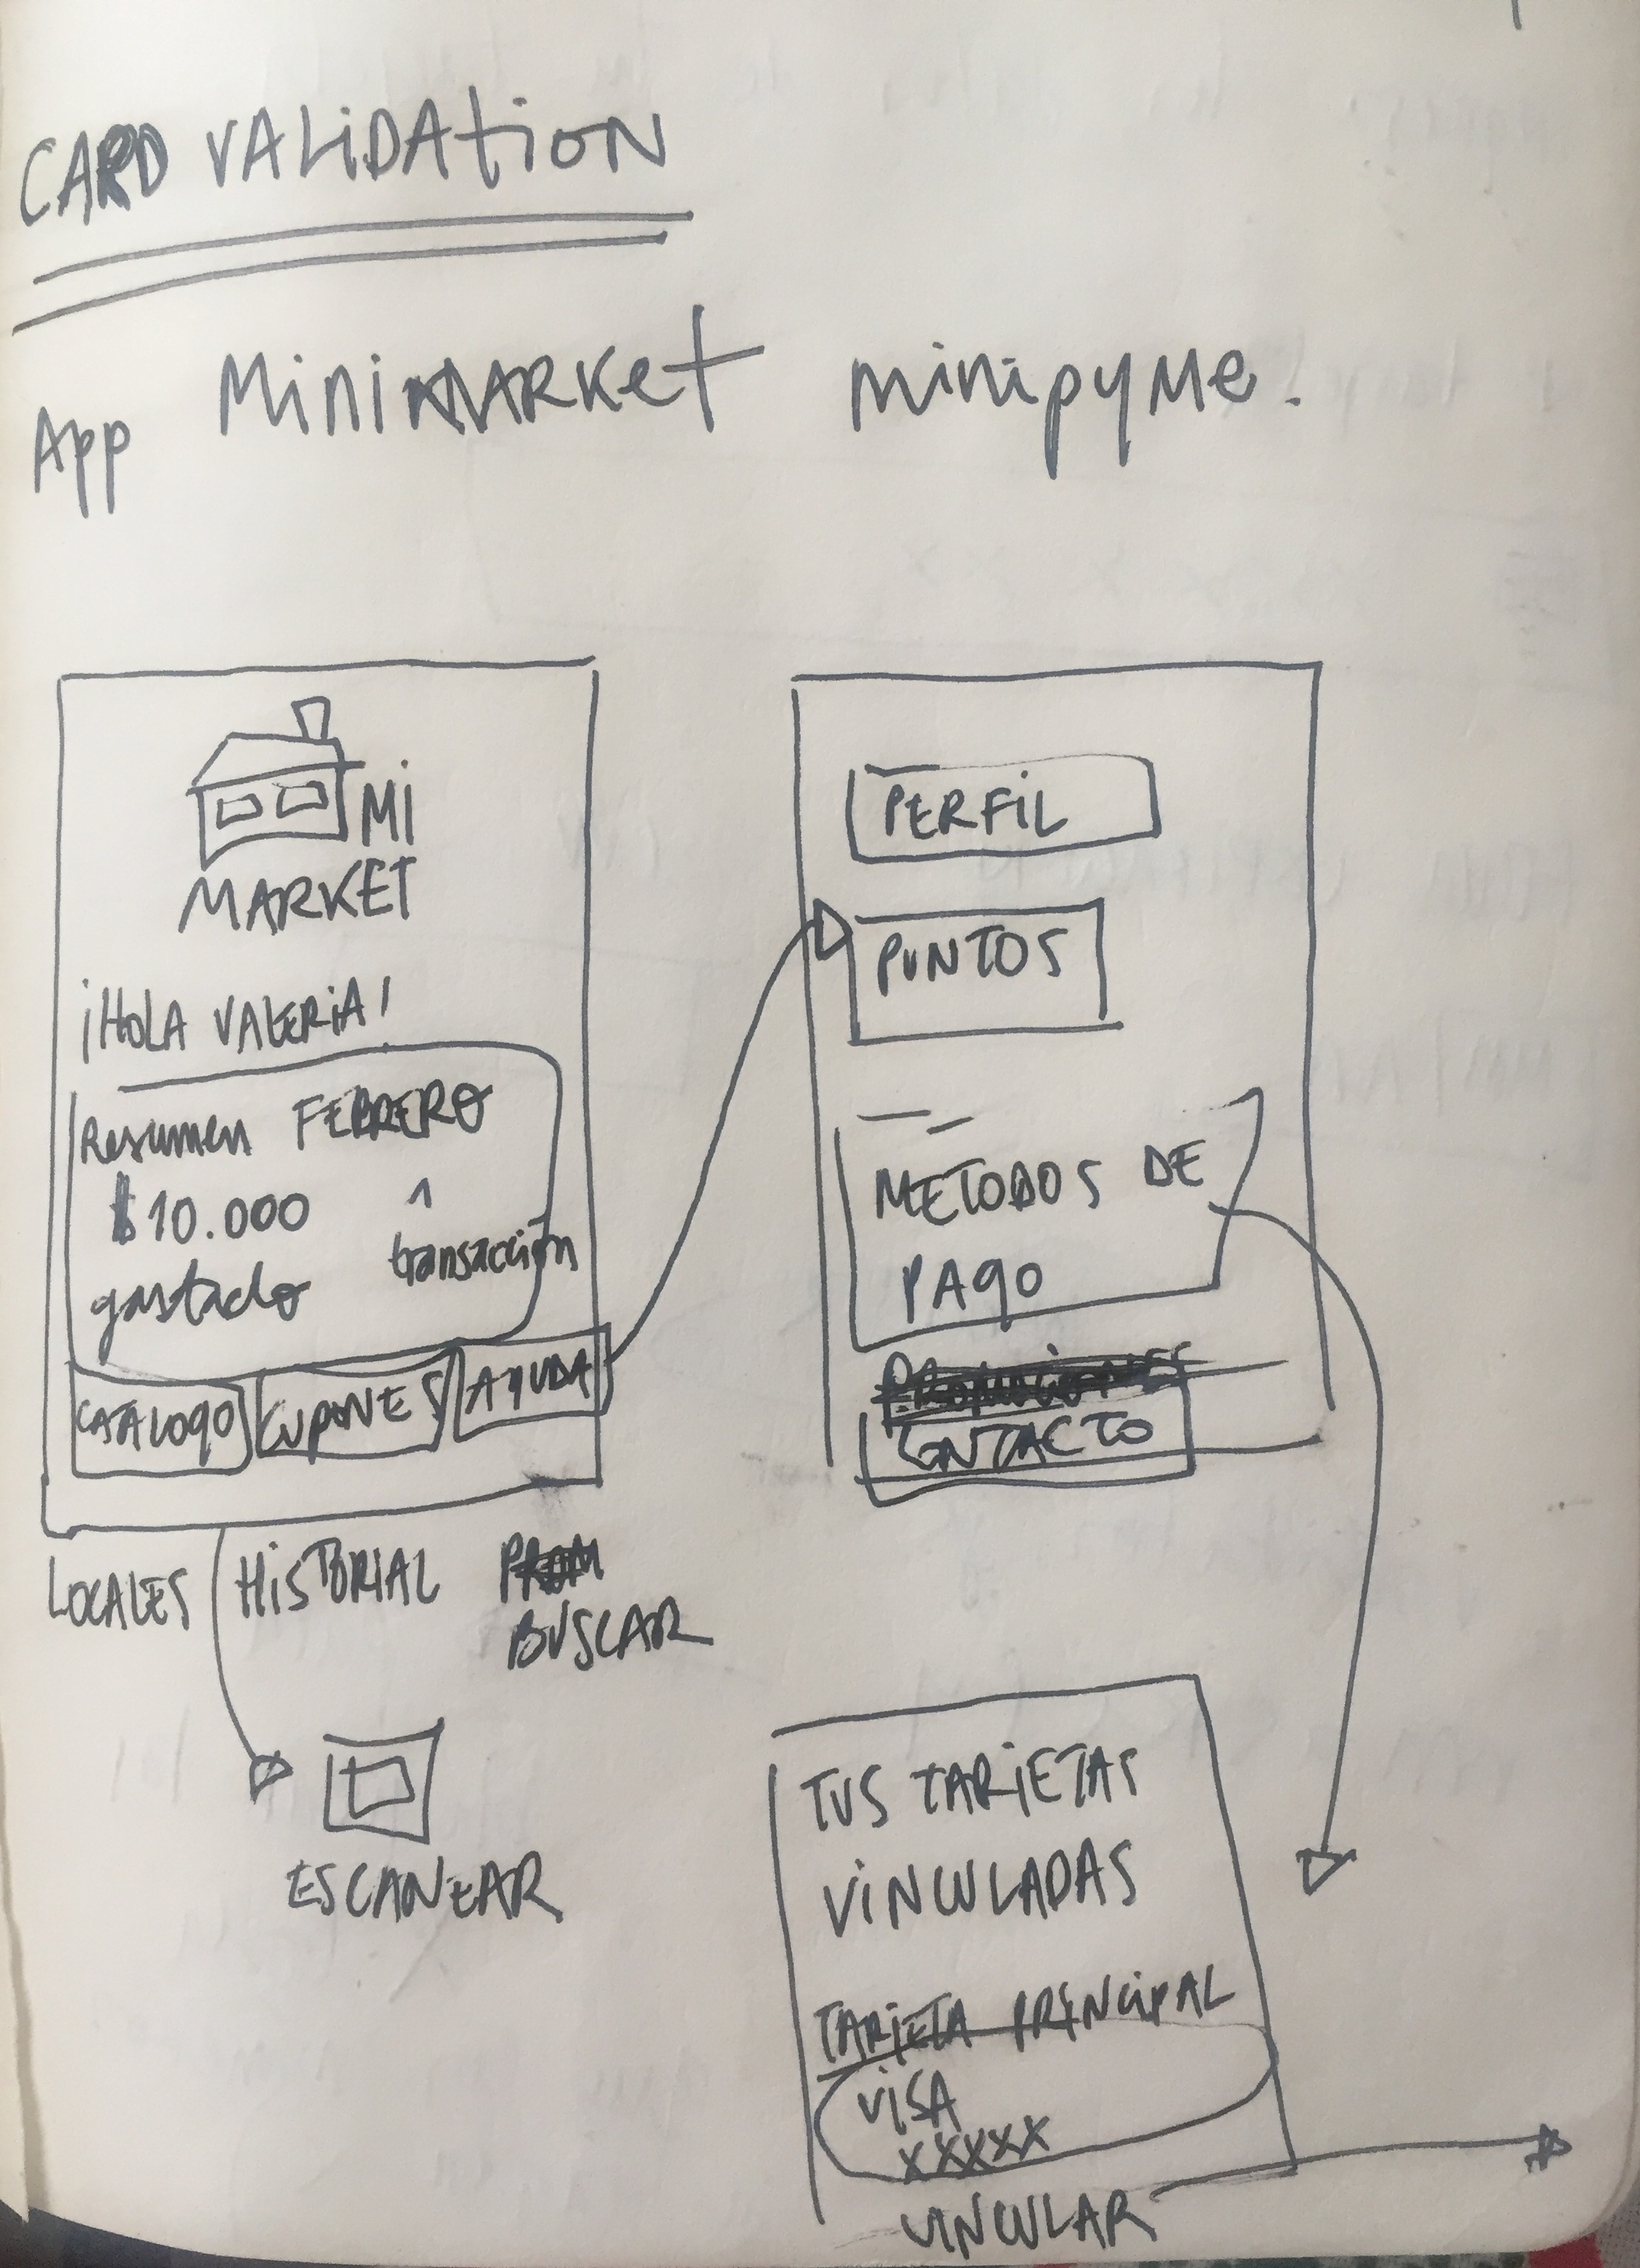 CARD VALIDATION
App MiniMARKet minipyme.
MI
MARKET
¡HOLA VALERIA!
Resumen FEBRERO
$10.000 1
gastado transacción
CATALOGO CUPONES AYUDA
LOCALES HISTORIAL PROM
BUSCAR
ESCANEAR
PERFIL
PUNTOS
METODOS DE
PAGO
PROMOCIONES
CONTACTO
TUS TARJETAS
VINCULADAS
TARJETA PRINCIPAL
VISA
XXXXX
VINCULAR